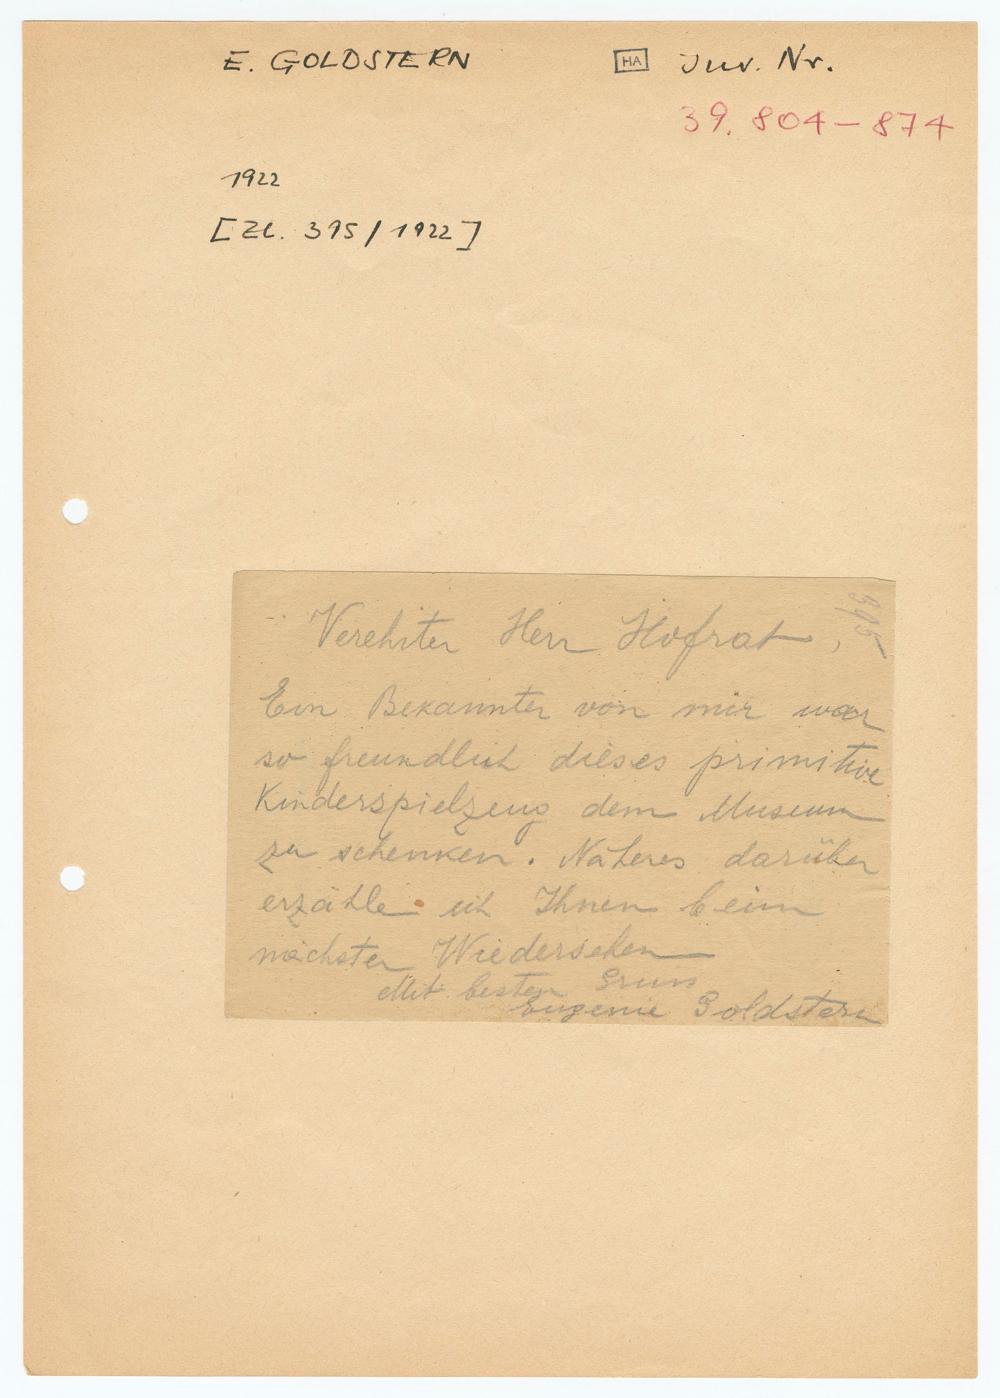 E. GOLDSTERN
HA Inv. Nr.
39.804-874
1922
[Zl. 395/1922]
395
Verehrter Herr Hofrat,
Ein Bekannter von mir war
so freundlich dieses primitive
Kinderspielzeug dem Museum
zu schenken. Näheres darüber
erzähle ich Ihnen beim
nächsten Wiedersehen
Mit besten Gruss
Eugenie Goldstern